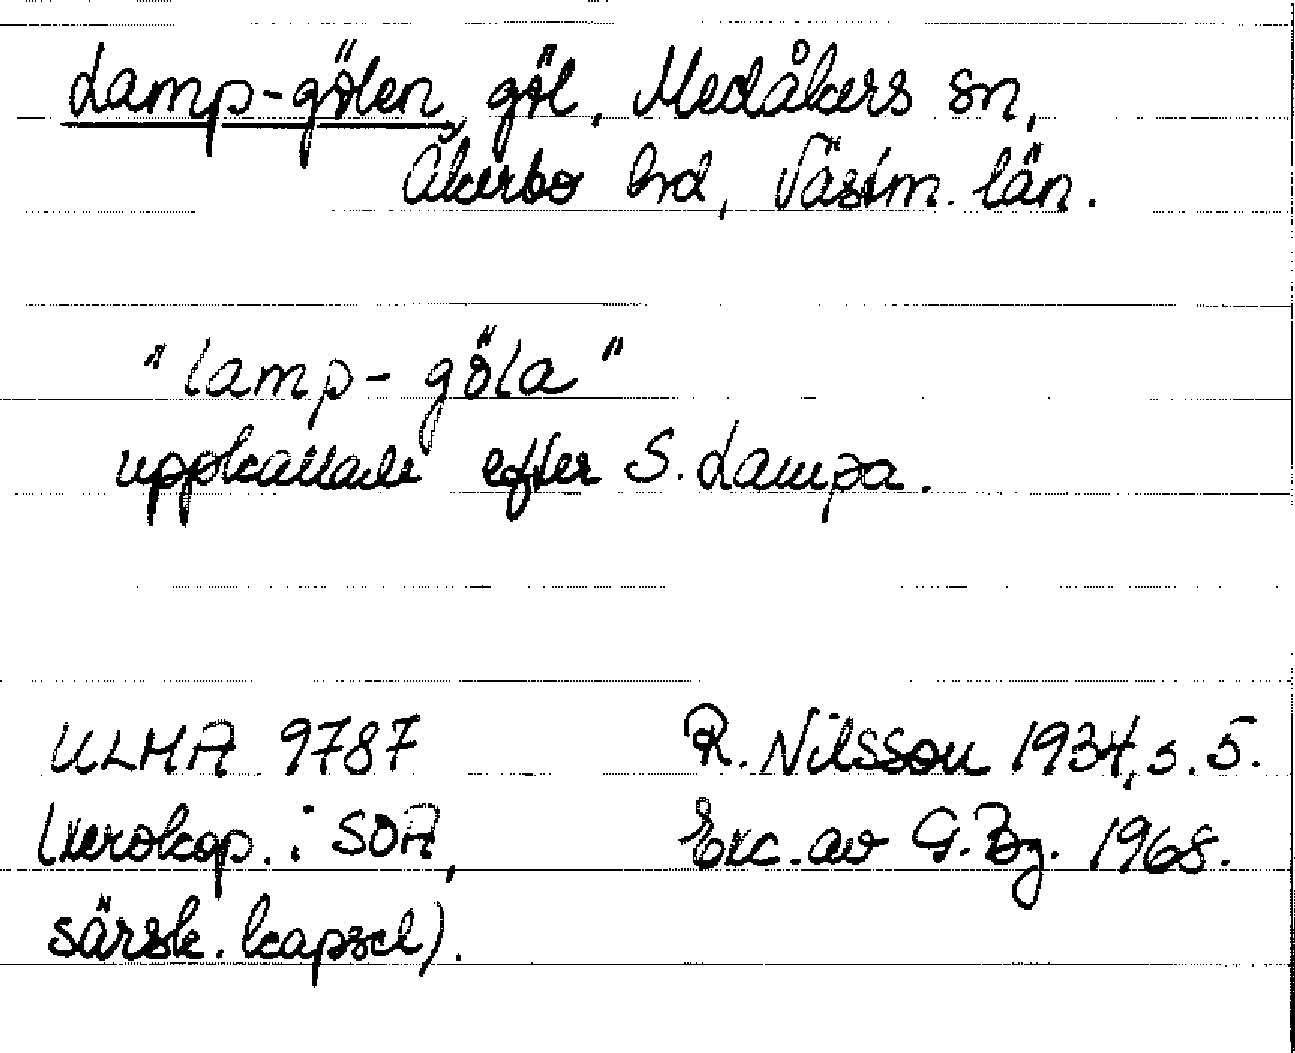 Lamp-gölen, göl, Medåkers sn,
Åkerbo hd, Västm. län.
"lamp-göla"
uppkallade efter S. Lampa.
ULMA 9787
(xerokop. i SOA,
särsk. kapsel).
R. Nilsson 1934, s. 5.
Exc. av G. Bg. 1968.